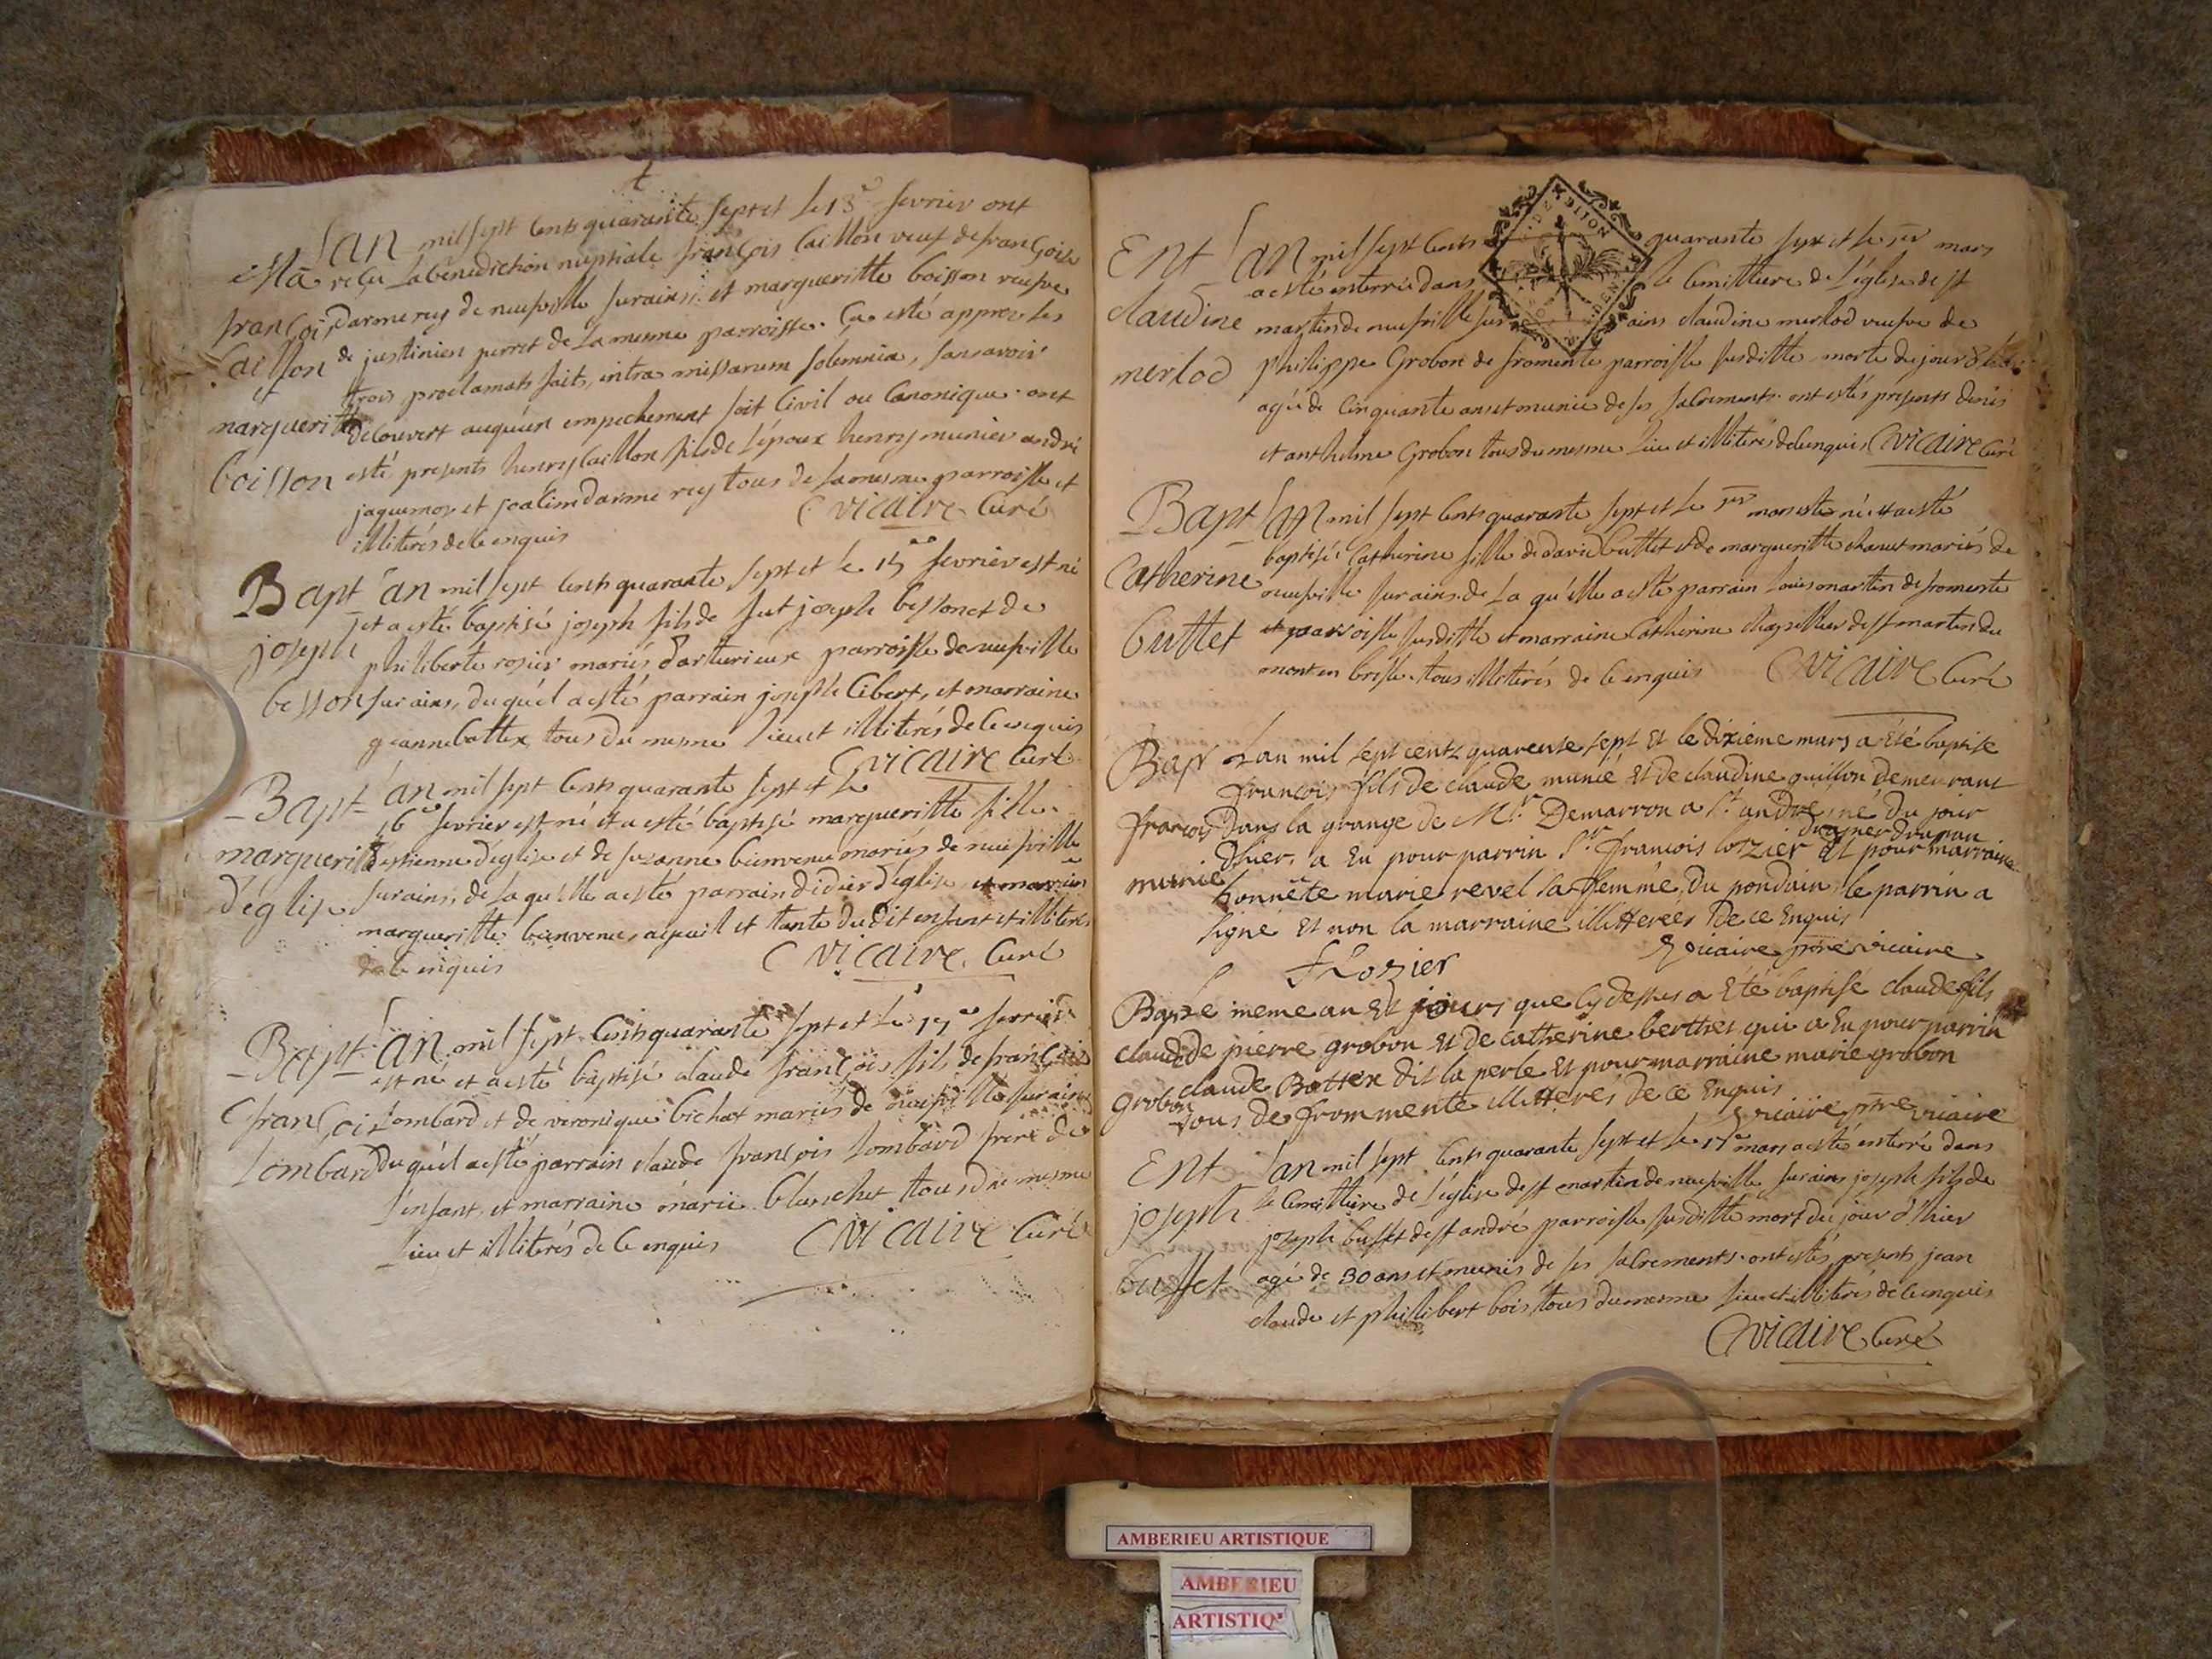 Lan mil sept cents quarante sept et le 13e fevrier ont
Ma reçu la bénédiction nuptiale françois Caillon veuf de françoise
françois darmerey de neufville surains et margueritte boisson veufve
Caillon de justinien perret de la mesme parroisse. Ça esté apprez les
et trois proclamats faits, intra missarum solemnia, sans avoir
margueritte découvert auquun empechement soit Civil ou Canonique. ont
boisson esté presents henry Caillon fils de l'époux henry munier andré
jaquemoz et joakim darmerey tous de la mesme parroisse et
illiterés de ce enquis C vicaire Curé
Bapt Lan mil sept cents quarante sept et le 15e fevrier est né
et a esté baptisé joseph fils de fut joseph bessonet de
joseph philiberte rosier mariés d'arturieux parroisse de neufville
besson surains, duquél a esté parrain joseph Cibert, et marraine
geanne battex tous du mesme lieu et illiterés de ce enquis
C vicaire Curé
Bapt Lan mil sept cents quarante sept et le
16e fevrier est né et a esté baptisé margueritte fille
margueritte d'estienne d'église et de suzanne bienvenu mariés de neufville
d'église surains, de la quélle a esté parrain didier d'église et marraine
margueritte bienvenu, et tante du dit enfant et illiterés
de ce enquis C vicaire Curé
Bapt Lan mil sept cents quarante sept et le 17e fevrier
est né et a esté baptisé claude françois fils de françois
C françois Lombard et de veronique bichat mariés de neufville surains
Lombard duquél a esté parrain claude françois Lombard frere de
l'enfant, et marraine marie blanchet tous du mesme
lieu et illiterés de ce enquis C vicaire Curé
Ent Lan mil sept cents quarante sept et le 1er mars
a esté enterrée dans le Cemittiere de l'église de st
claudine martin de neufville surains claudine merlod veufve de
merlod philippe Grobon de fromente parroisse susditte morte du jour d'hier
agée de Cinquante ans et munie de ses sacrements. ont estés présents denis
et anthelme Grobon tous du mesme lieu et illiterés de ce enquis C vicaire Curé
Bapt Lan mil sept cents quarante sept et le 1er mars este né et a esté
baptisée Catherine fille de david buttet et de margueritte chanet mariés de
Catherine neufville surains. de la quélle a esté parrain Louis martin de fromente
buttet et parroisse susditte et marraine Catherine chapellier de st martin du
mont en bresse. tous illiterés de ce enquis C vicaire Curé
Bapt Lan mil sept cents quarente sept Et le dixieme mars a été baptisé
francois fils de claude munié Et de claudine guillon demeurant
francois dans la grange de Mr. Demarron a st andré, né du jour
munié dhier, a Eu pour parrin Sr. francois Lozier Et pour marraine
honnête marie revel sa femme, du pondain, le parrin a
signé Et non la marraine illitterées de ce Enquis
F Lozier vicaire ptre vicaire
Bapt Le meme an Et jours que Cy dessus a été baptisé claude fils
claude de pierre grobon Et de catherine berthet qui a Eu pour parrin
claude Battex dit la perle Et pour marraine marie grobon
grobon tous de frommente illitterés de ce Enquis
vicaire ptre vicaire
Ent Lan mil sept cents quarante sept et le 17e mars a esté enterré dans
le Cemittiere de l'église de st martin de neufville surains joseph fils de
joseph joseph buffet de st andré parroisse susditte mort du jour d'hier
buffet agé de 30 ans et munis de ses sacrements. ont estés presents jean
claude et philibert bois tous du mesme lieu et illiterés de ce enquis
C vicaire Curé
AMBERIEU ARTISTIQUE
AMBERIEU
ARTISTIQ